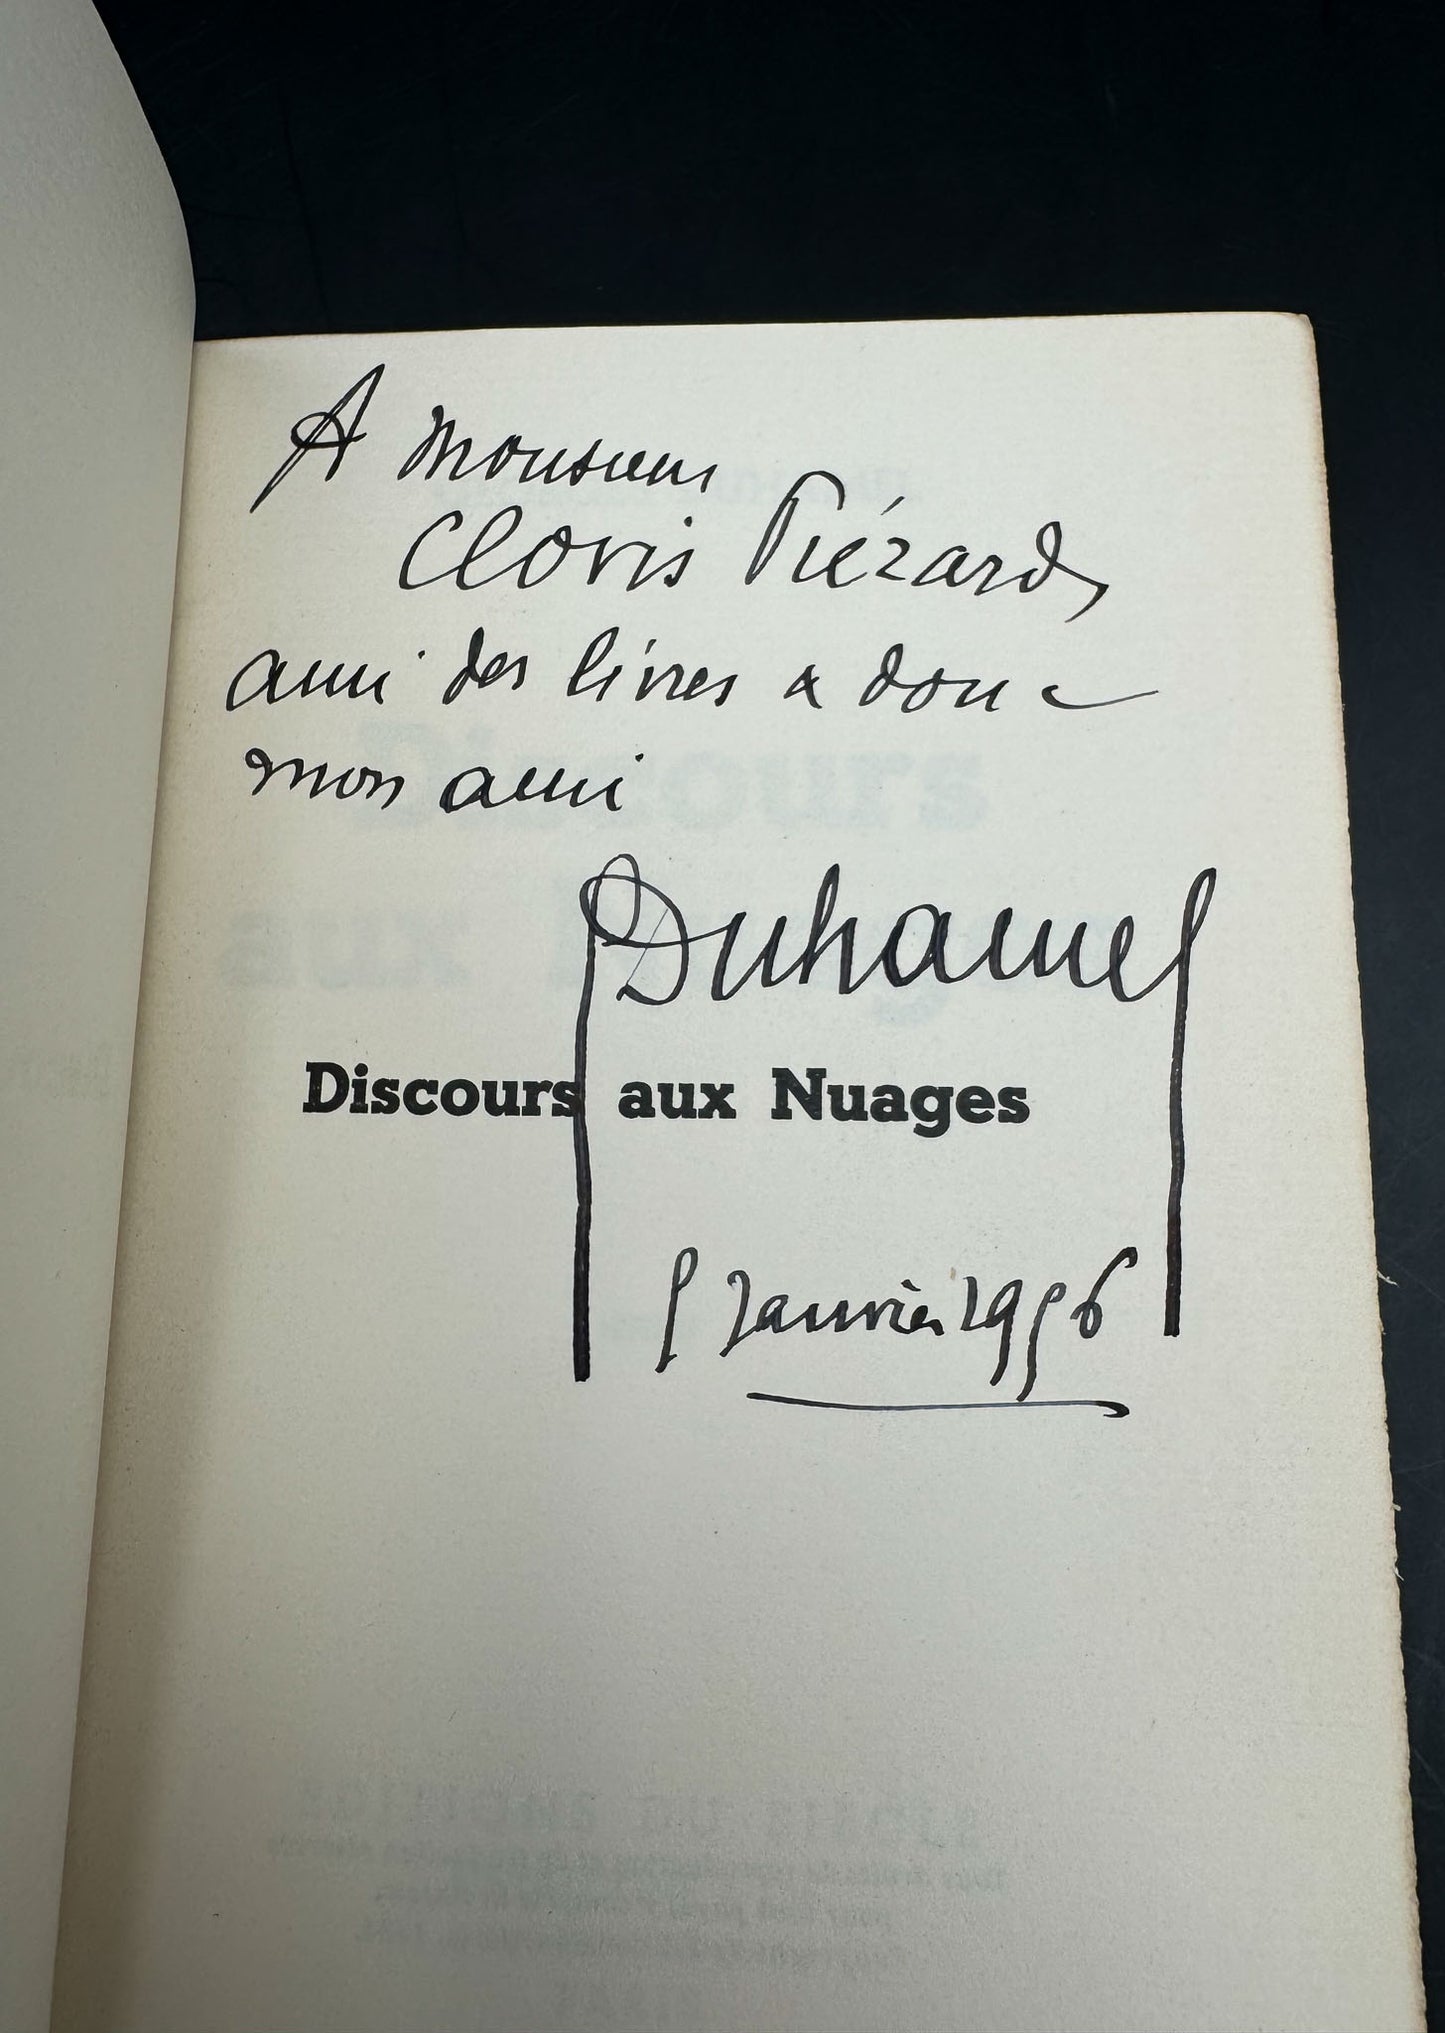 A Monsieur
Clovis Piérard,
ami des livres & donc
mon ami
Duhamel
Discours aux Nuages
5 Janvier 1956